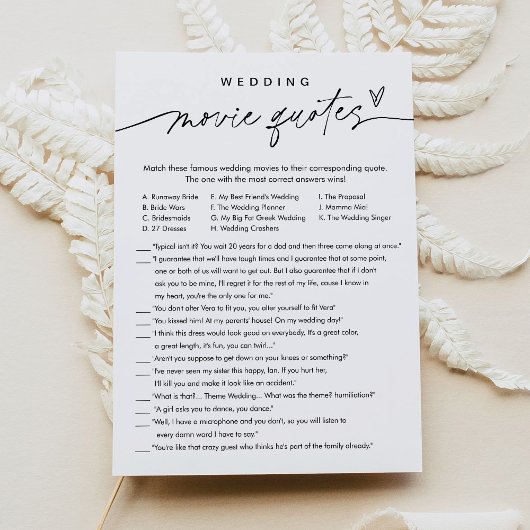 WEDDING
movie quotes
Match these famous wedding movies to their corresponding quote.
The one with the most correct answers wins!
A. Runaway Bride E. My Best Friend's Wedding I. The Proposal
B. Bride Wars F. The Wedding Planner J. Mamma Mia!
C. Bridesmaids G. My Big Fat Greek Wedding K. The Wedding Singer
D. 27 Dresses H. Wedding Crashers
____ "Typical isn't it? You wait 20 years for a dad and then three come along at once."
____ "I guarantee that we'll have tough times and I guarantee that at some point,
one or both of us will want to get out. But I also guarantee that if I don't
ask you to be mine, I'll regret it for the rest of my life, cause I know in
my heart, you're the only one for me."
____ "You don't alter Vera to fit you, you alter yourself to fit Vera"
____ "You kissed him! At my parents' house! On my wedding day!"
____ "I think this dress would look good on everybody. It's a great color,
a great length, it's fun, you can twirl..."
____ "Aren't you suppose to get down on your knees or something?"
____ "I've never seen my sister this happy, Ian. If you hurt her,
I'll kill you and make it look like an accident."
____ "What is that?... Theme Wedding... What was the theme? humiliation?"
____ "A girl asks you to dance, you dance."
____ "Well, I have a microphone and you don't, so you will listen to
every damn word I have to say."
____ "You're like that crazy guest who thinks he's part of the family already."